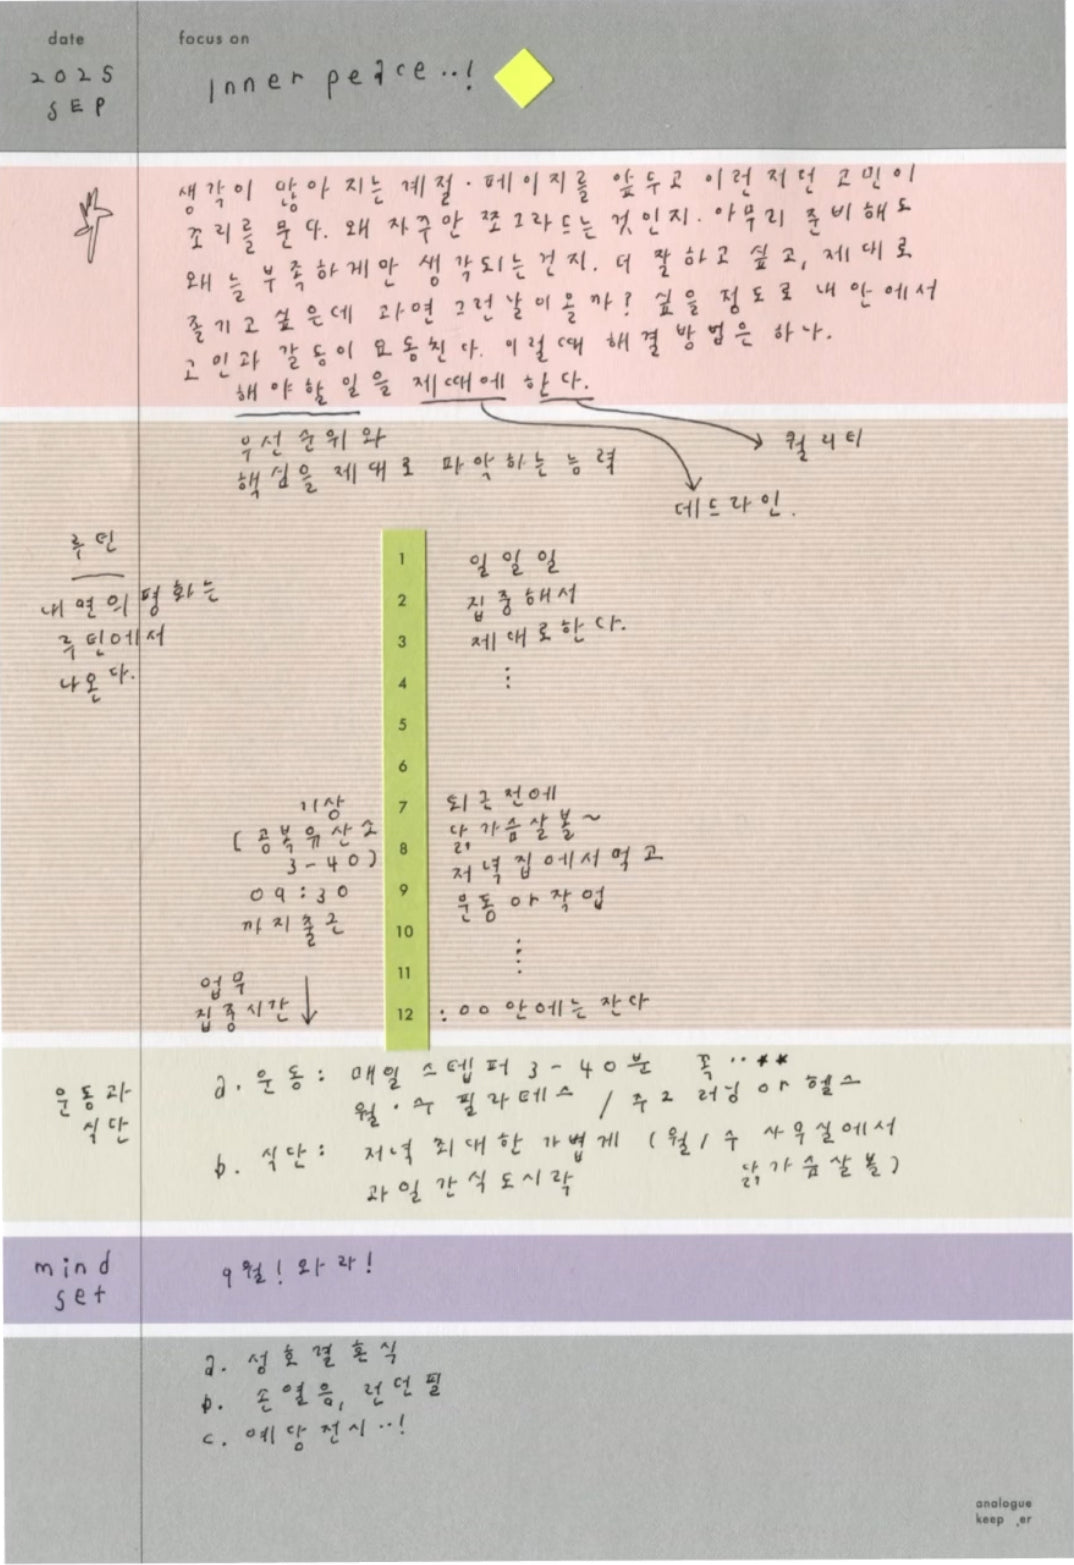 date
2025
SEP
focus on
Inner peace..!
생각이 많아 지는 계절·페이지를 앞두고 이런저런 고민이
꼬리를 문다. 왜 자꾸만 쪼그라드는 것인지. 아무리 준비해도
왜 늘 부족하게만 생각되는건지. 더 잘하고 싶고, 제대로
즐기고 싶은데 과연 그런날이 올까? 싶을 정도로 내 안에서
고민과 갈등이 요동친다. 이럴때 해결 방법은 하나.
해야할 일을 제때에 한다.
우선순위와
핵심을 제대로 파악하는 능력
퀄리티
데드라인.
루틴
내면의 평화는
루틴에서
나온다.
1
2
3
4
5
6
7
8
9
10
11
12
일일일
집중해서
제대로한다.
⋮
기상
(공복유산소
3-40)
09:30
까지출근
업무
집중시간 ↓
퇴근전에
닭가슴살볼~
저녁집에서먹고
운동or작업
⋮
:00 안에는잔다
운동과
식단
a. 운동: 매일 스텝퍼 3-40분 꼭..**
월·수 필라테스 / 주2 러닝 or 헬스
b. 식단: 저녁 최대한 가볍게 (월/수 사무실에서
닭가슴살볼)
과일간식도시락
mind
set
9월! 와라!
a. 성호결혼식
b. 손열음, 런던필
c. 예당전시..!
analogue
keep er